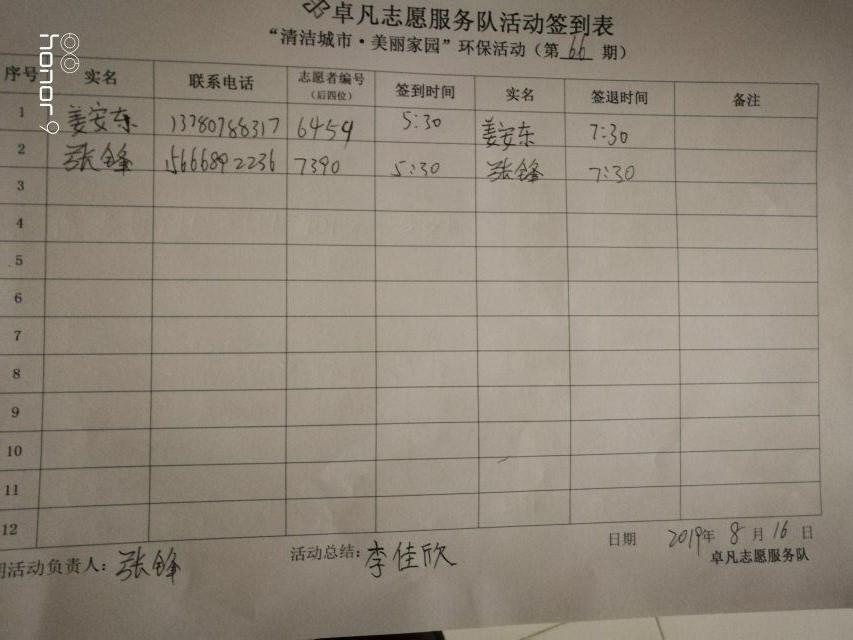 卓凡志愿服务队活动签到表
“清洁城市·美丽家园”环保活动（第 66 期）
序号 实名 联系电话 志愿者编号（后四位） 签到时间 实名 签退时间 备注
1 姜安东 13780788317 6459 5:30 姜安东 7:30
2 张锋 15666892236 7390 5:30 张锋 7:30
3
4
5
6
7
8
9
10
11
12
活动负责人：张锋 活动总结：李佳欣 日期 2019年 8 月 16 日
卓凡志愿服务队
honor 9